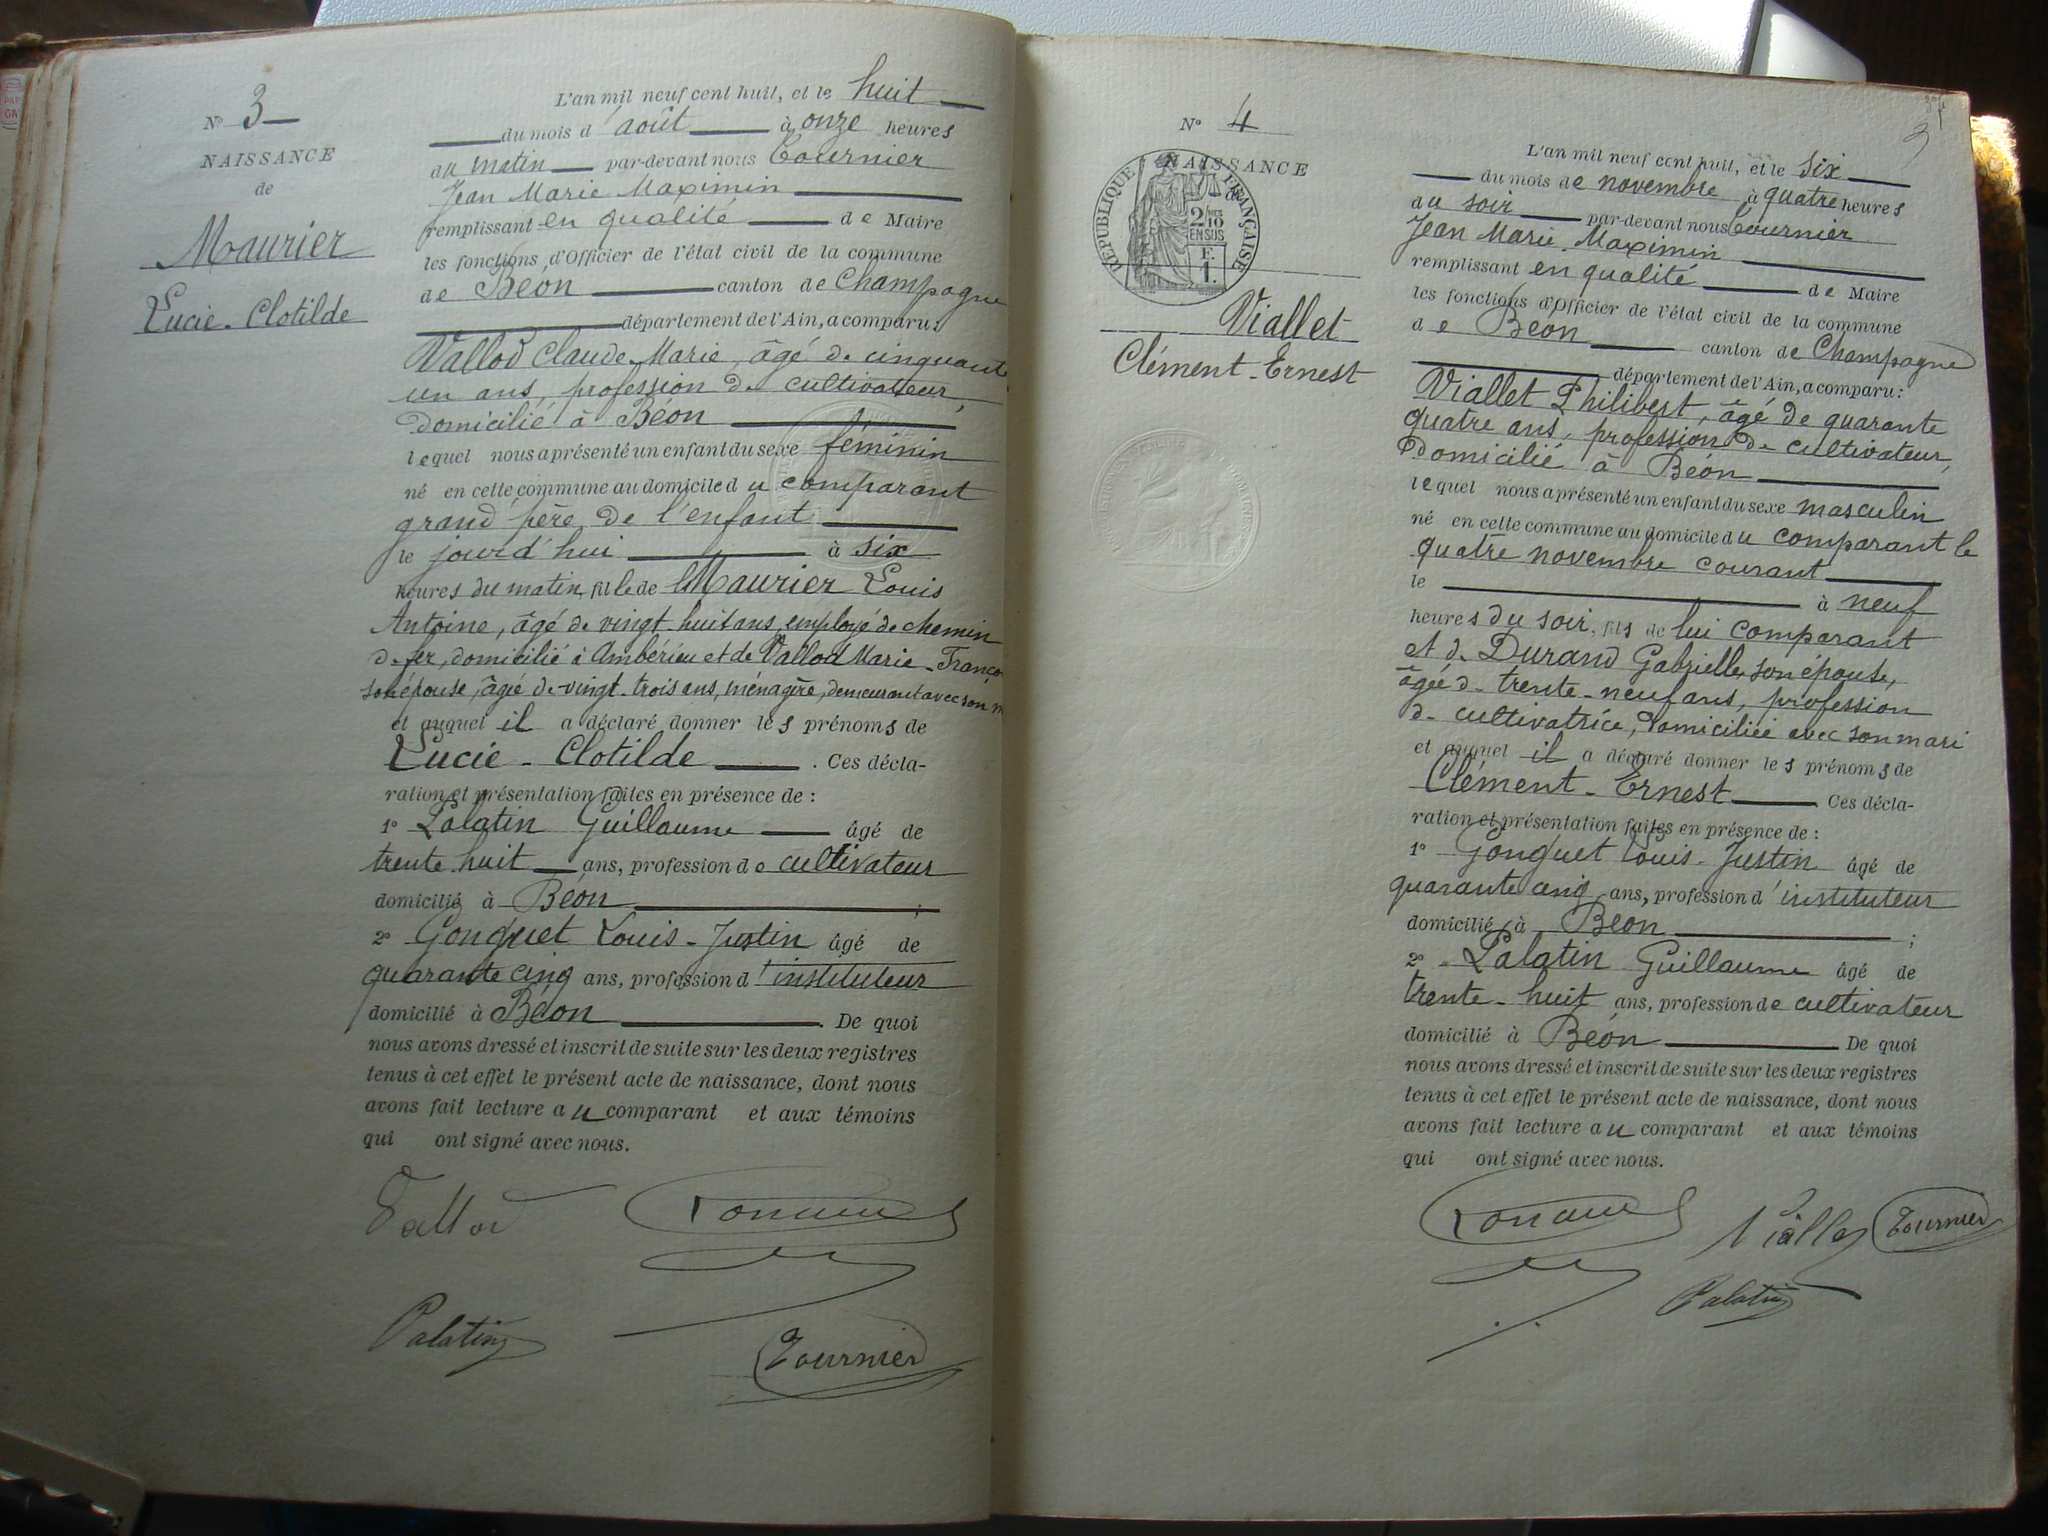 N° 3
NAISSANCE
de
Maurier
Lucie-Clotilde
L'an mil neuf cent huit, et le huit
du mois d'août à onze heures
du matin par-devant nous Tournier
Jean Marie Maximin
remplissant en qualité de Maire
les fonctions d'Officier de l'état civil de la commune
de Béon canton de Champagne
département de l'Ain, a comparu :
Vallod Claude-Marie, âgé de cinquante
un ans, profession de cultivateur,
domicilié à Béon
lequel nous a présenté un enfant du sexe féminin
né en cette commune au domicile du comparant
grand père de l'enfant
le jourd'hui à six
heures du matin, fille de Maurier Louis
Antoine, âgé de vingt-huit ans, employé de chemin
de fer, domicilié à Ambérieu et de Vallod Marie-Franço
son épouse, âgée de vingt-trois ans, ménagère, demeurant avec son m
et auquel il a déclaré donner les prénoms de
Lucie-Clotilde. Ces décla-
ration et présentation faites en présence de :
1° Palatin Guillaume âgé de
trente huit ans, profession de cultivateur
domicilié à Béon ;
2° Gonguet Louis-Justin âgé de
quarante cinq ans, profession d'instituteur
domicilié à Béon. De quoi
nous avons dressé et inscrit de suite sur les deux registres
tenus à cet effet le présent acte de naissance, dont nous
avons fait lecture au comparant et aux témoins
qui ont signé avec nous.
Vallod
Palatin
Tournier
N° 4
NAISSANCE
RÉPUBLIQUE FRANÇAISE
2/10
EN SUS
F.
1.
Viallet
Clément-Ernest
L'an mil neuf cent huit, et le six
du mois de novembre à quatre heures
du soir par-devant nous Tournier
Jean Marie Maximin
remplissant en qualité de Maire
les fonctions d'Officier de l'état civil de la commune
de Béon canton de Champagne
département de l'Ain, a comparu :
Viallet Philibert, âgé de quarante
quatre ans, profession de cultivateur,
domicilié à Béon
lequel nous a présenté un enfant du sexe masculin
né en cette commune au domicile du comparant le
quatre novembre courant
le à neuf
heures du soir, fils de lui comparant
et de Durand Gabrielle, son épouse,
âgée de trente-neuf ans, profession
de cultivatrice, domiciliée avec son mari
et auquel il a déclaré donner les prénoms de
Clément-Ernest. Ces décla-
ration et présentation faites en présence de :
1° Gonguet Louis-Justin âgé de
quarante cinq ans, profession d'instituteur
domicilié à Béon ;
2° Palatin Guillaume âgé de
trente-huit ans, profession de cultivateur
domicilié à Béon De quoi
nous avons dressé et inscrit de suite sur les deux registres
tenus à cet effet le présent acte de naissance, dont nous
avons fait lecture au comparant et aux témoins
qui ont signé avec nous.
Viallet Tournier
Palatin